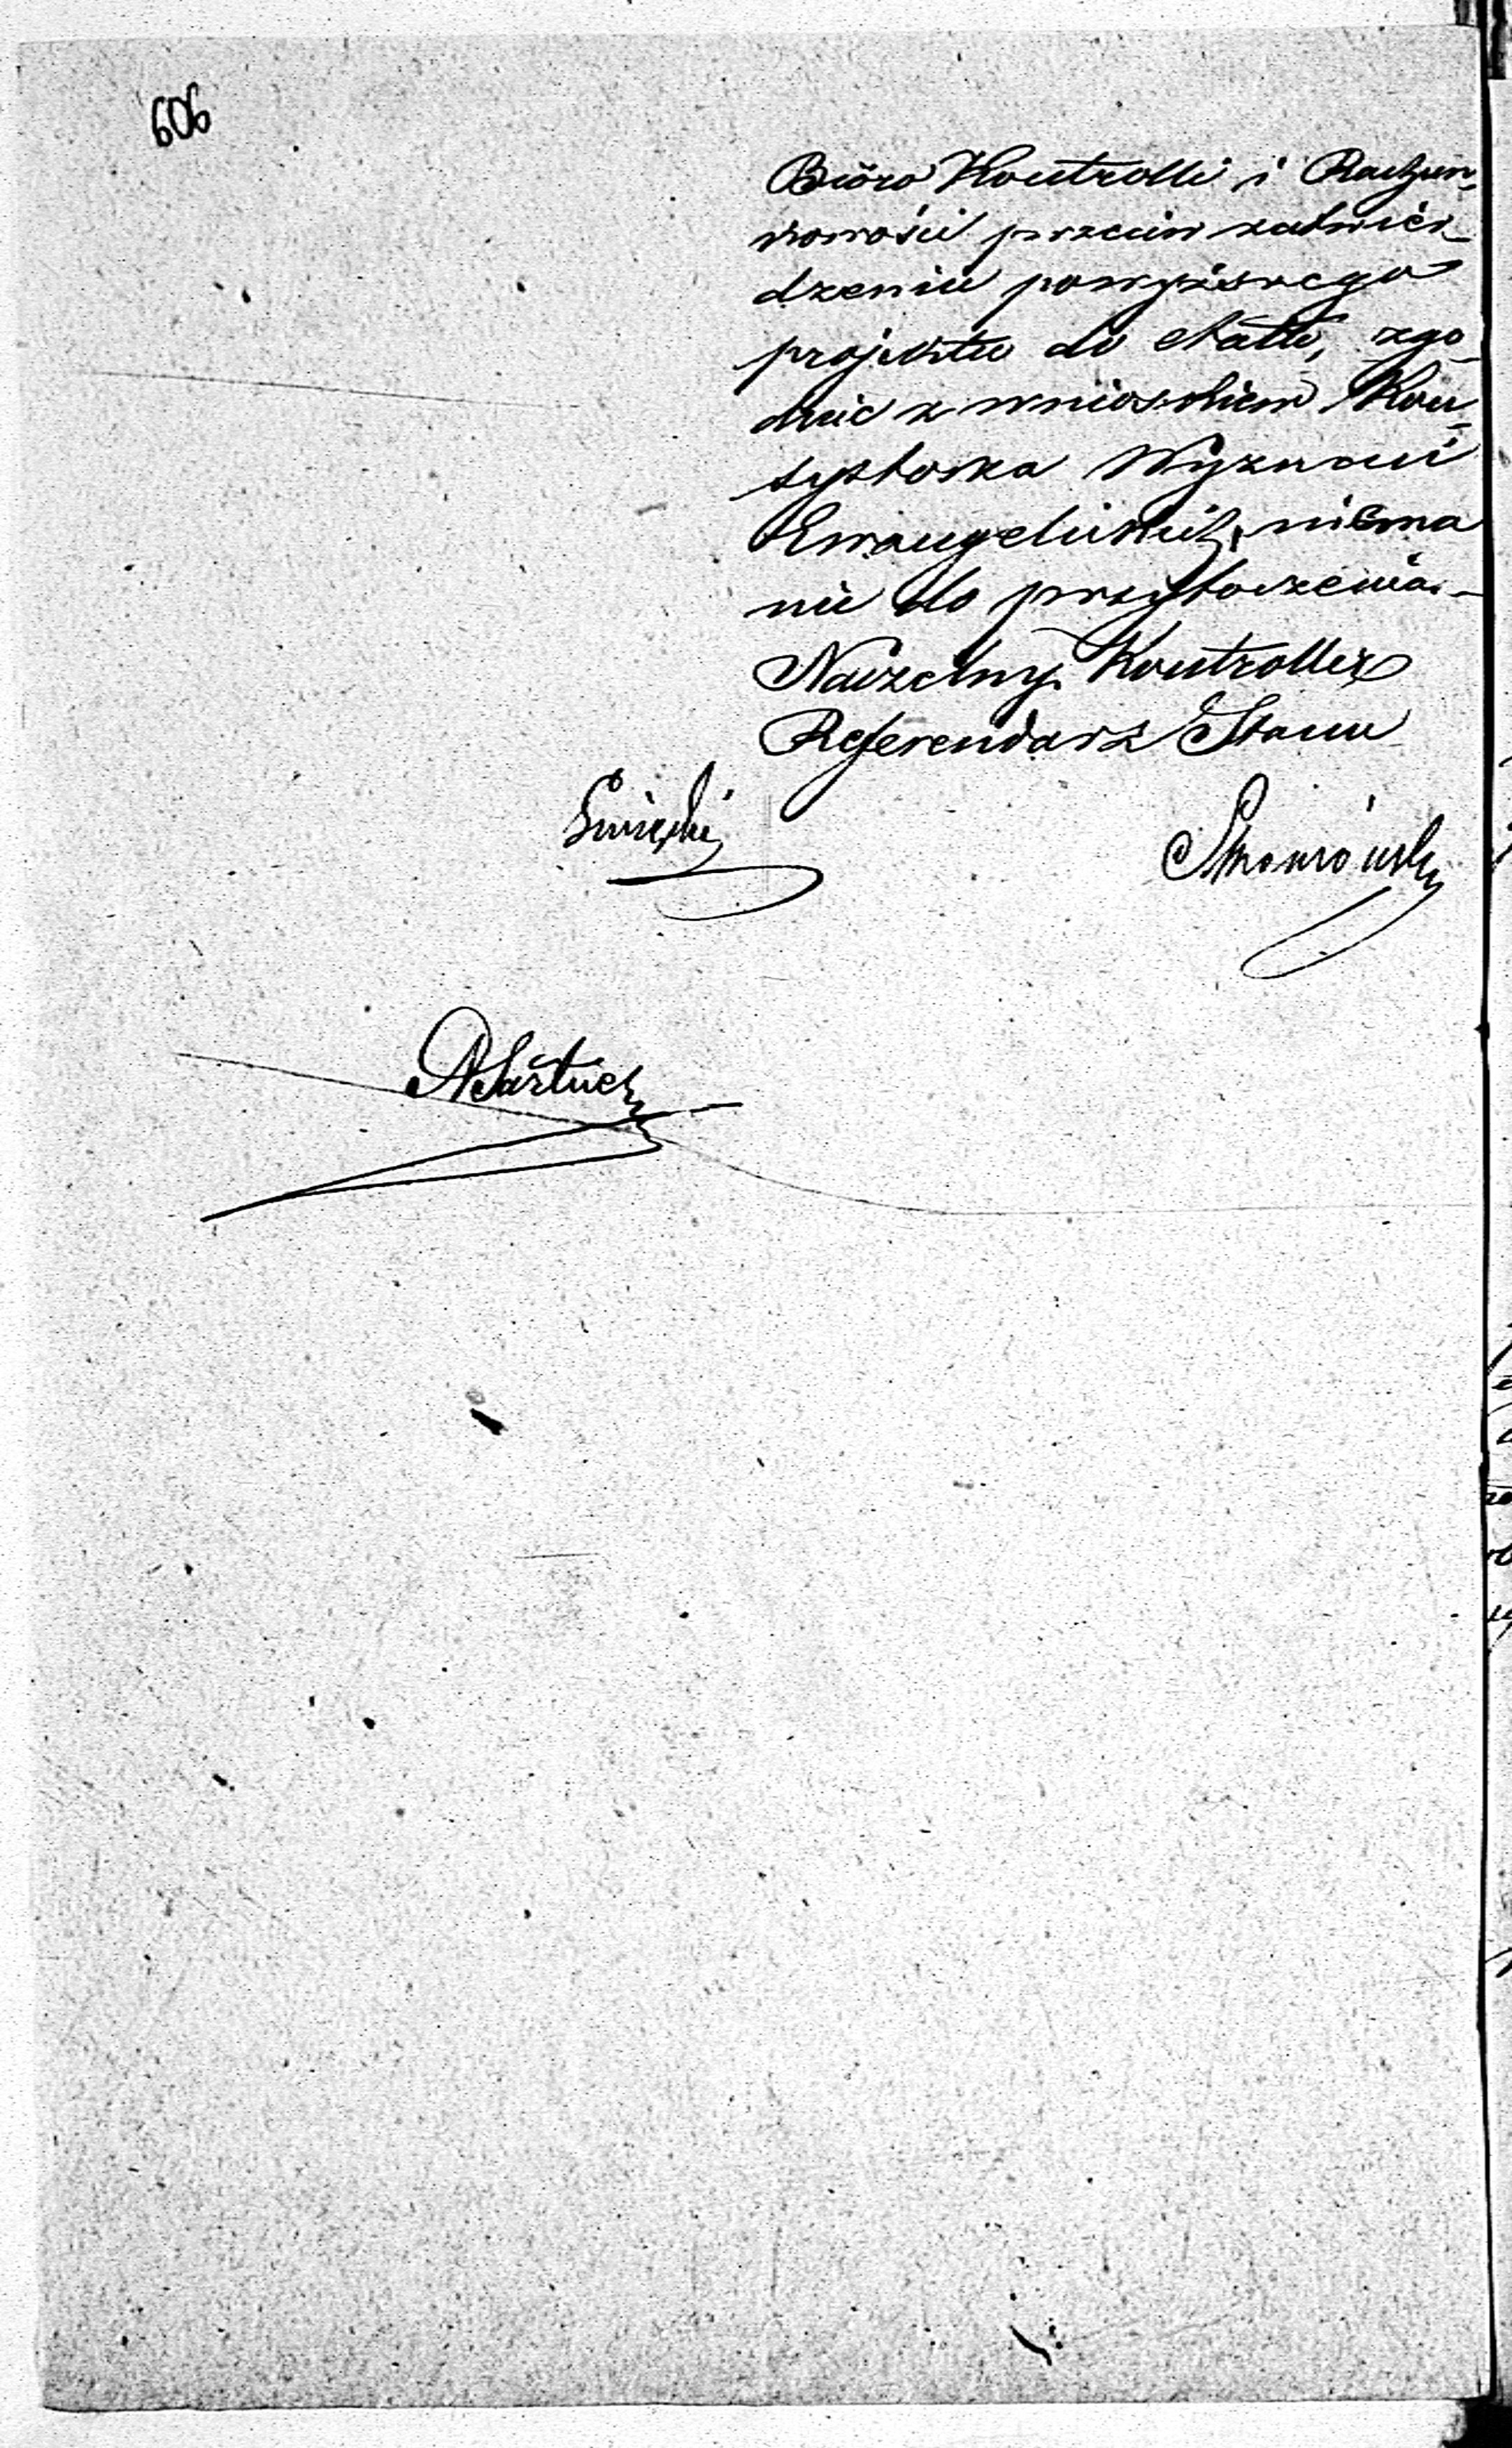 606
Biōro Kontrolli i Rachun-
kowości przeciw zatwier-
dzeniu powyższego
projektu do etatu, zgo-
dnie z wnioskiem Kon-
systorza Wyznań
Ewangelickich, niema
nic do przytoczenia. -
Naczelny Kontroller
Referendarz Stanu